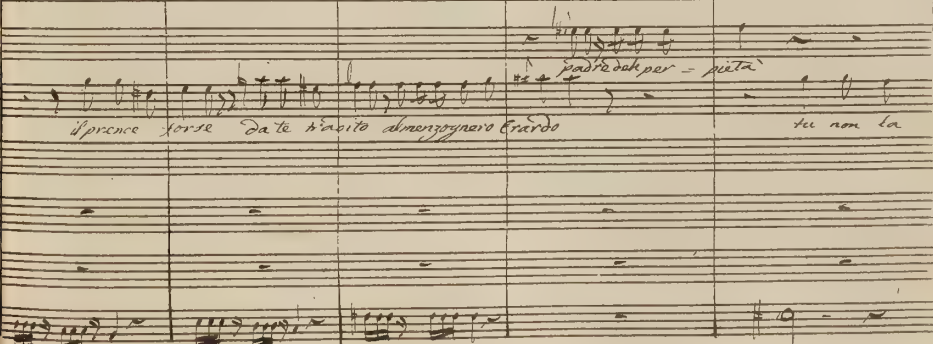 padre deh per = pietà
il prence forse da te rapito al menzognero Erardo tu non la